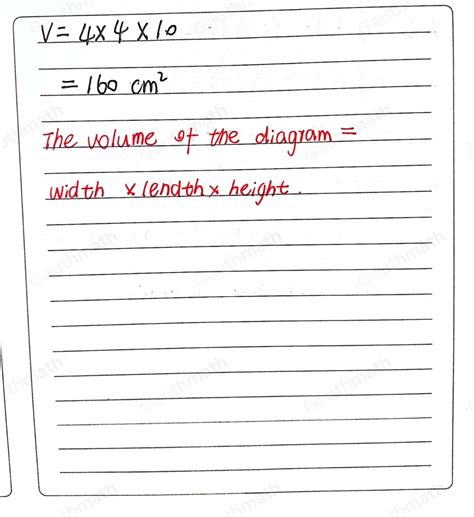 V = 4 × 4 × 10
= 160 cm²
The volume of the diagram =
width × lendth × height.